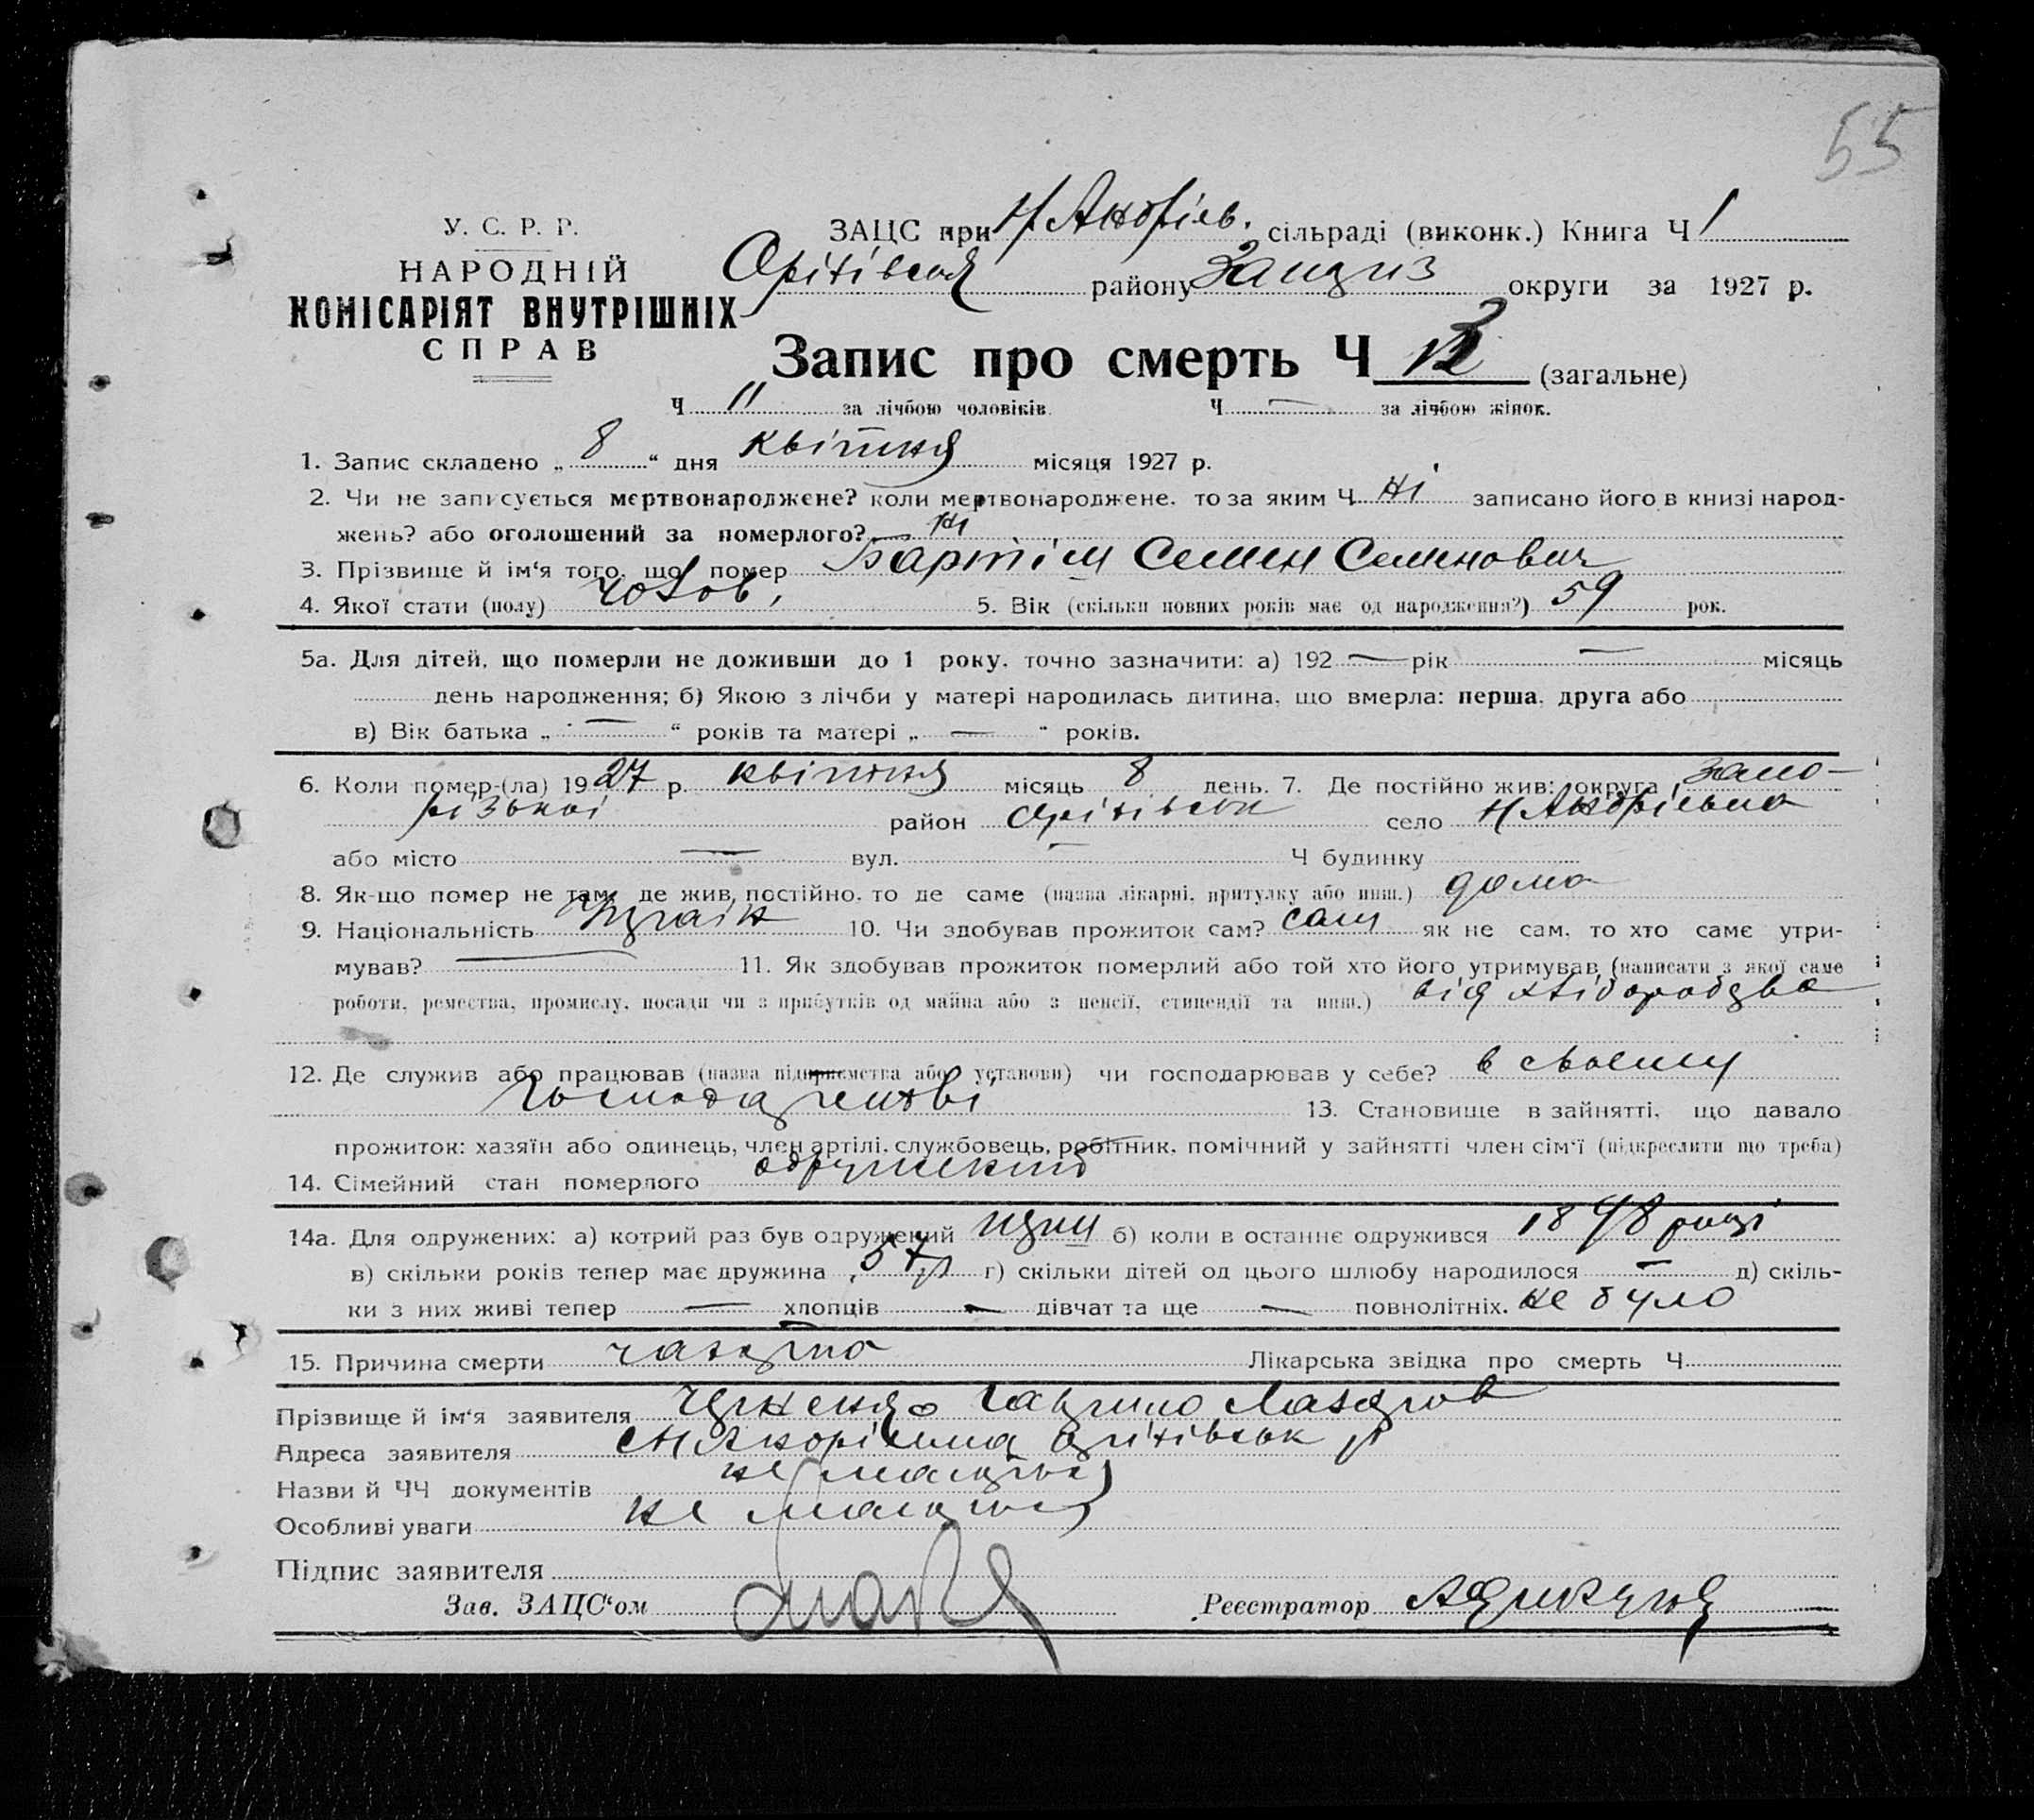 55
У. С. Р. Р.
НАРОДНІЙ
КОМІСАРІЯТ ВНУТРІШНІХ
СПРАВ
ЗАЦС при Н Андріїв. сільраді (виконк.) Книга Ч 1
Оріхівськ району округи за 1927 р.
Запис про смерть Ч (загальне)
Ч 11 за лічбою чоловіків. Ч — за лічбою жінок.
1. Запис складено „ 8 “ дня квітня місяця 1927 р.
2. Чи не записується мертвонароджене? коли мертвонароджене, то за яким Ч. ні записано його в книзі народ-
жень? або оголошений за померлого? ні
3. Прізвище й ім‘я того, що помер Семен Семенович
4. Якої стати (полу) чолов. 5. Вік (скільки повних років має од народження?) 59 рок.
5а. Для дітей, що померли не доживши до 1 року, точно зазначити: а) 192 — рік — місяць
день народження; б) Якою з лічби у матері народилась дитина, що вмерла: перша, друга або
в) Вік батька „ — “ років та матері „ — “ років.
6. Коли помер-(ла) 1927 р. квітня місяць 8 день. 7. Де постійно жив: округа Запо-
різької район Оріхівськ село Н Андріївка
або місто — вул. — Ч будинку
8. Як-що помер не там, де жив постійно, то де саме (назва лікарні, притулку або инш.) дома
9. Національність 10. Чи здобував прожиток сам? сам як не сам, то хто саме утри-
мував? — 11. Як здобував прожиток померлий або той хто його утримував (написати з якої саме
роботи, ремества, промислу, посади чи з прибутків од майна або з пенсії, стипендії та инш.) від хліборобства
12. Де служив або працював (назва підприємства або установи) чи господарював у себе? в своєму
господарстві 13. Становище в зайнятті, що давало
прожиток: хазяїн або одинець, член артілі, службовець, робітник, помічний у зайнятті член сім‘ї (підкреслити що треба)
14. Сімейний стан померлого
14а. Для одружених: а) котрий раз був одружений б) коли в останнє одружився 1898 році
в) скільки років тепер має дружина 57 р г) скільки дітей од цього шлюбу народилося — д) скіль-
ки з них живі тепер — хлопців — дівчат та ще — повнолітніх. не було
15. Причина смерти Лікарська звідка про смерть Ч
Прізвище й ім‘я заявителя
Адреса заявителя Оріхівськ р
Назви й ЧЧ документів не
Особливі уваги не
Підпис заявителя
Зав. ЗАЦС‘ом
Реєстратор